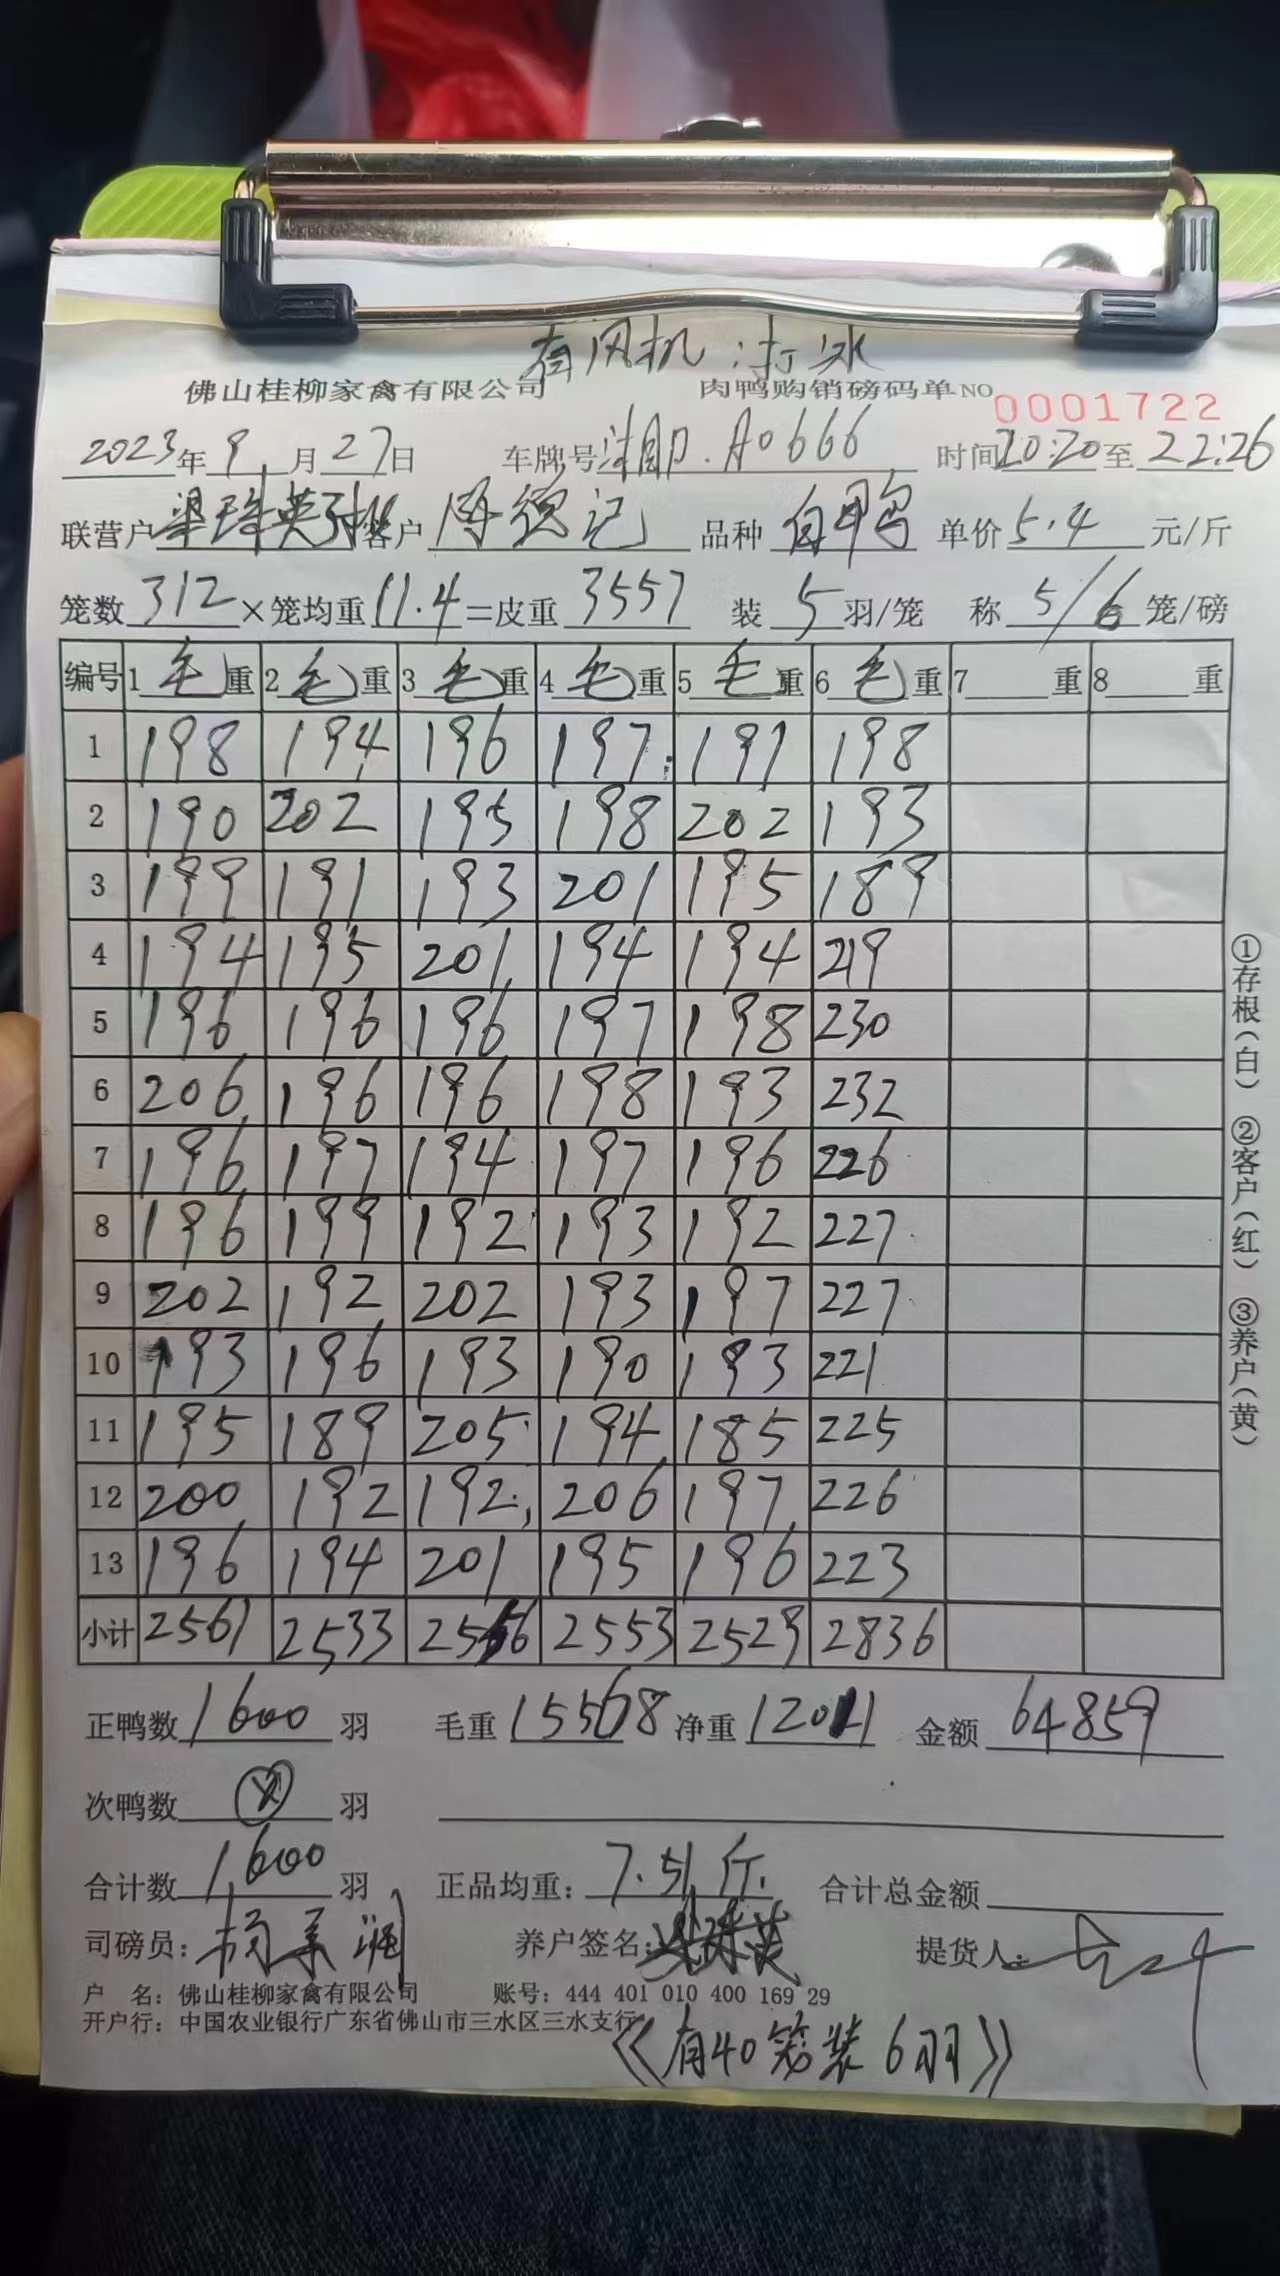 有风机,打冰
佛山桂柳家禽有限公司 肉鸭购销磅码单 NO 0001722
2023年9月27日 车牌号 湘D.A0666 时间20:20至22:26
联营户 梁珠英 客户 陈德记 品种 白鸭 单价5.4元/斤
笼数312×笼均重11.4=皮重3557 装5羽/笼 称5/6笼/磅
编号 1毛重 2毛重 3毛重 4毛重 5毛重 6毛重 7 重 8 重
1 198 194 196 197 191 198
2 190 202 195 198 202 193
3 199 191 193 201 195 189
4 194 195 201 194 194 219
5 196 196 196 197 198 230
6 206 196 196 198 193 232
7 196 197 194 197 196 226
8 196 199 192 193 192 227
9 202 192 202 193 197 227
10 193 196 193 190 193 221
11 195 189 205 194 185 225
12 200 192 192 206 197 226
13 196 194 201 195 196 223
小计 2561 2533 2556 2553 2529 2836
正鸭数1600羽 毛重15568 净重12011 金额64859
次鸭数 羽
合计数1600羽 正品均重:7.51斤. 合计总金额
司磅员: 养户签名:梁珠英 提货人:
户 名:佛山桂柳家禽有限公司 账号:444 401 010 400 169 29
开户行:中国农业银行广东省佛山市三水区三水支行
《有40笼装6羽》
①存根(白) ②客户(红) ③养户(黄)